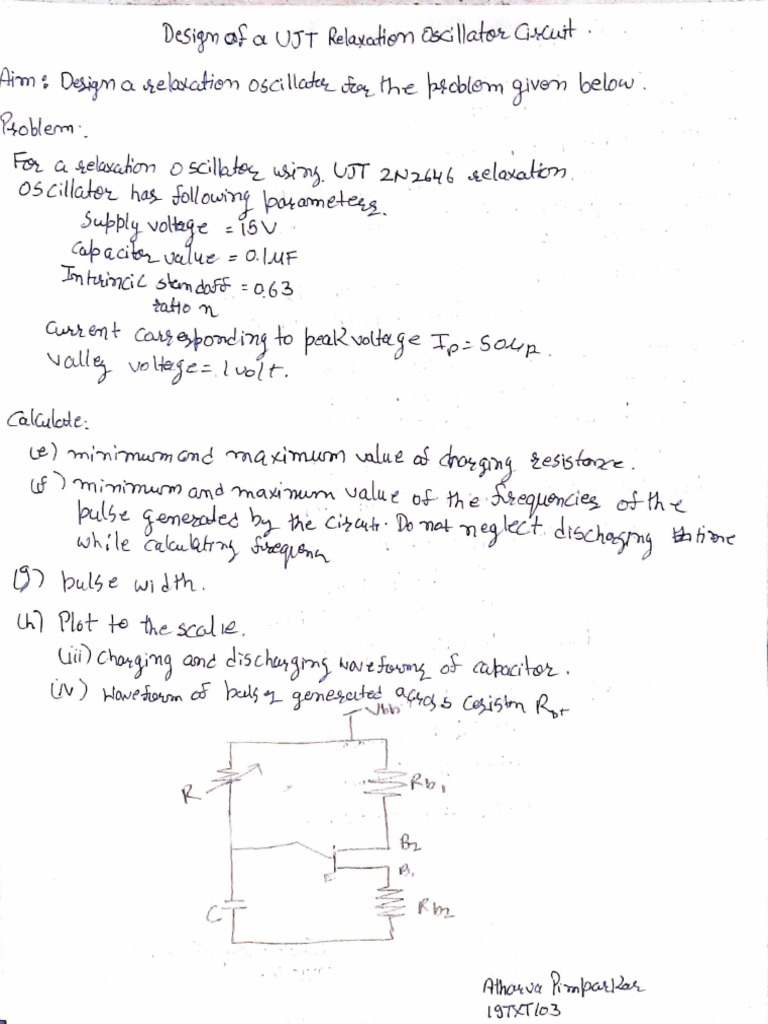 Design of a UJT Relaxation Oscillator Circuit.
Aim: Design a relaxation oscillator for the problem given below.
Problem:
For a relaxation oscillator using UJT 2N2646 relaxation
oscillator has following parameters.
Supply voltage = 15V
Capacitor value = 0.1µF
Intrincic standoff = 0.63
ratio n
Current corresponding to peak voltage Ip = 50µA.
Valley voltage = 1 volt.
Calculate:
(e) minimum and maximum value of charging resistance.
(f) minimum and maximum value of the frequencies of the
pulse generated by the circuit. Do not neglect discharging time
while calculating frequency
(g) pulse width.
(h) Plot to the scale.
(iii) Charging and discharging waveforms of capacitor.
(iv) Waveform of pulse generated across resistor
Vbb
R
Rb1
B2
B1
C
Rb2
Atharva Pimparkar
19TXT103